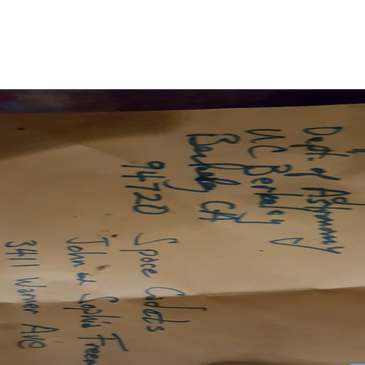 Dept. of Astronomy
UC Berkeley
Berkeley CA
94720
Space Cadets
John and Sophia
3411 Warner Ave